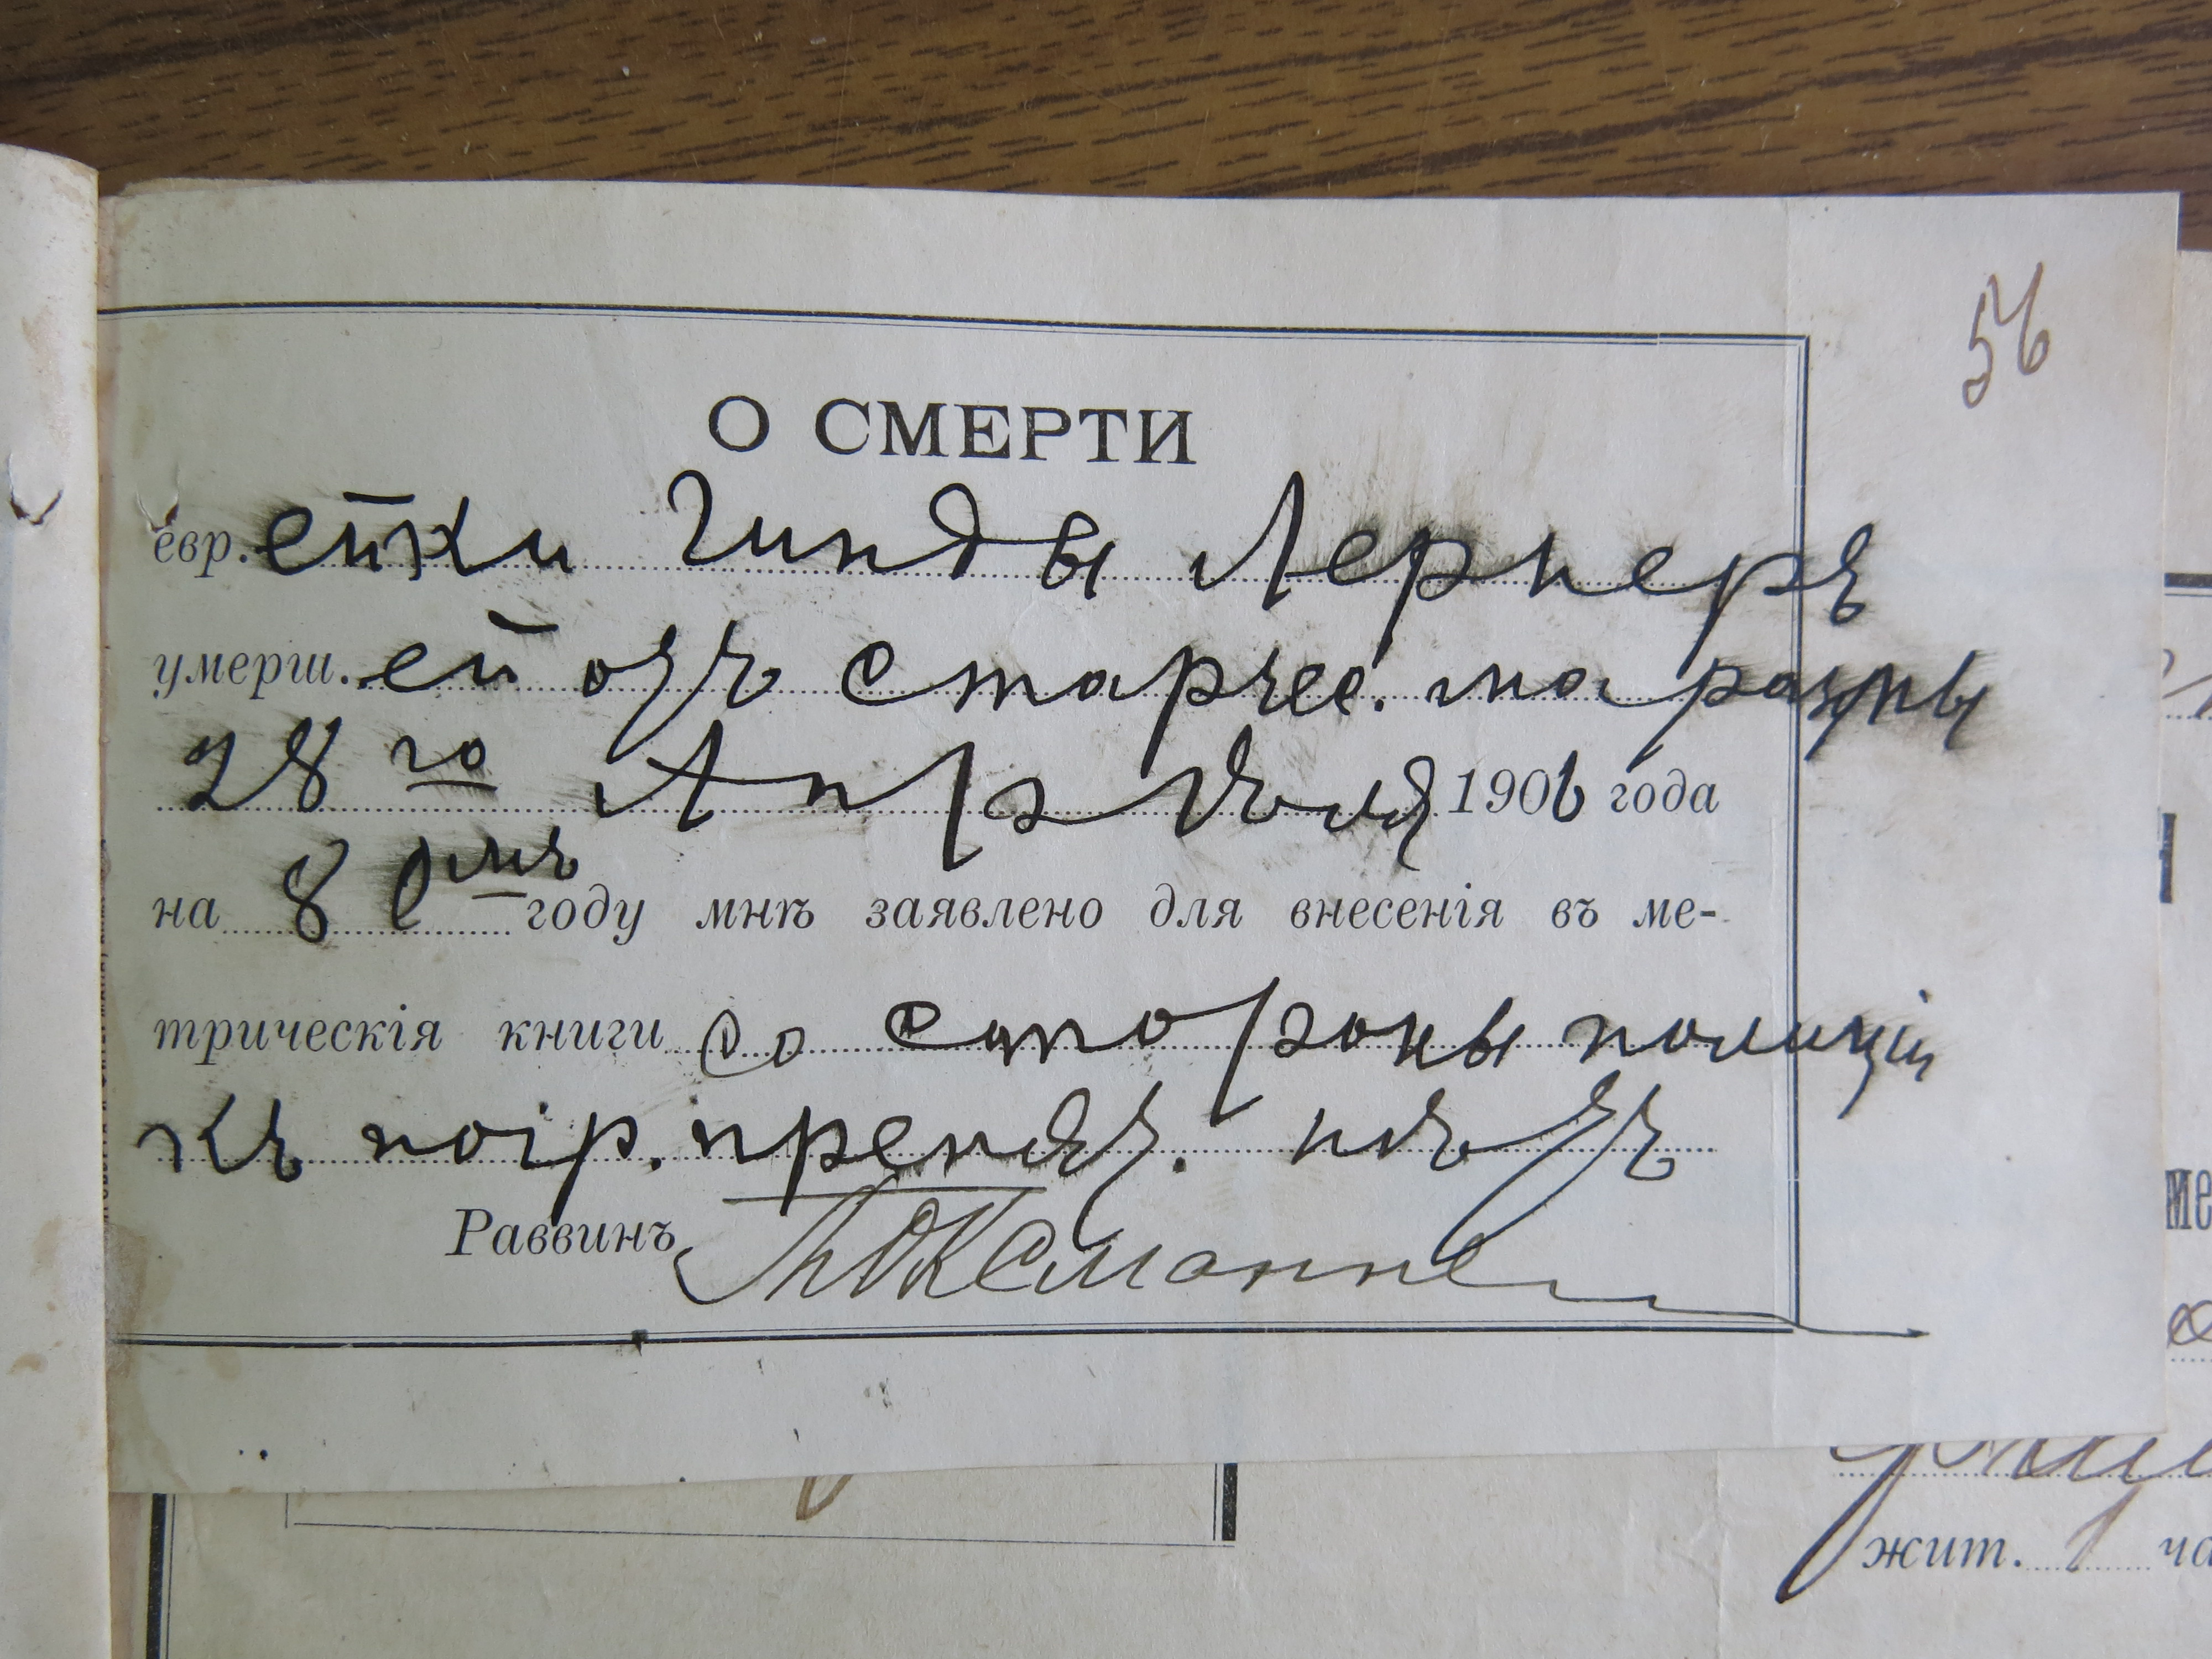 56
О СМЕРТИ
евр. ейки Гинды Лернеръ
умерш. ей отъ старчес. маразмы
28 го Апрѣля 1906 года
на 80мъ году мнѣ заявлено для внесенія въ ме-
трическія книги со стороны полиціи
къ погр. препят. нѣтъ
Раввинъ
жит.